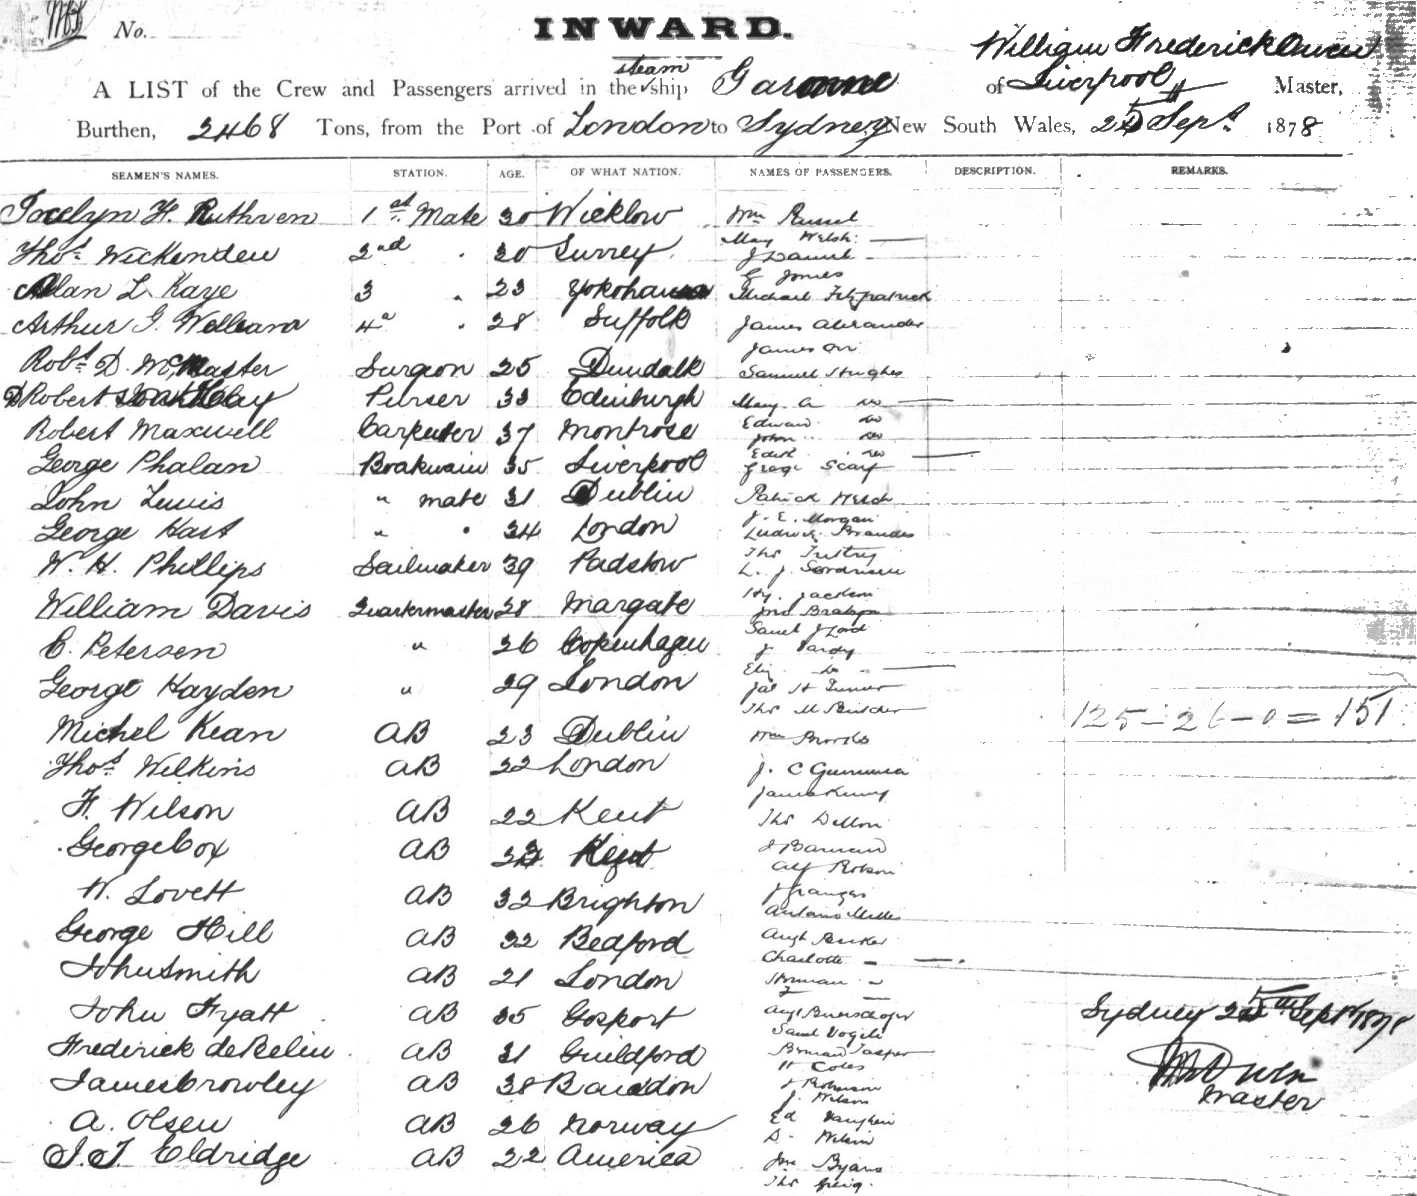 No.
INWARD.
William Frederick Owen
A LIST of the Crew and Passengers arrived in the steam ship Garonne of Liverpool Master,
Burthen, 2468 Tons, from the Port of London to Sydney New South Wales, 25 Sept 1878
SEAMEN'S NAMES. STATION. AGE. OF WHAT NATION. NAMES OF PASSENGERS. DESCRIPTION. REMARKS.
Jocelyn H. Ruthven 1st Mate 30 Wicklow Wm Russel
May Welsh —
Thos Wickenden 2nd . 30 Surrey J Daniel
G Jones
Allan L Kaye 3 . 23 Yokohama Michael Fitzpatrick
Arthur G. 4th . 28 Suffolk James Alexander
James Orr
Robt D. McMaster Surgeon 25 Dundalk Samuel Hughes
Robert Purser 33 Edinburgh Mary A Do —
Robert Maxwell Carpenter 37 Montrose Edward Do
John " Do
George Phalan Boatswain 35 Liverpool Do —
George Scarf
John Lewis " mate 31 Dublin Patrick Welch
J. E. Morgan
George Hart " . 34 London Ludwig Brandes
Thos
W. H. Phillips Sailmaker 39 Padstow L. J.
Hy. Jackson
William Davis Quartermaster 28 Margate Jno
Saml J Lord
C. Petersen " 26 Copenhagen J Pardy
Eliz Do —
George Hayden " 29 London Jas H Turner
Thos M
125 – 26 – 0 = 151
Michel Kean AB 23 Dublin Wm Brooks
Thos Wilkins AB 22 London J. C
James Kenny
F. Wilson AB 22 Kent Thos Dillon
George Cox AB Kent J
Alf Robson
W. Lovett AB 32 Brighton J Granger
Antonio
George Hill AB 32 Bedford Augt Becker
Charlotte — —
John Smith AB 21 London Herman
John Fyatt AB 35 Gosport Augt
Saml
Sydney 25th Sept 1878
Frederick de Belin AB 31 Guildford Jasper
H Coles
James Crowley AB 38 J Robinson
J. Wilson
Owen
Master
A. Olsen AB 26 Norway Ed Vaughan
D. Wilson
J. T. Eldridge AB 22 America Jno Byans
Thos Greig.